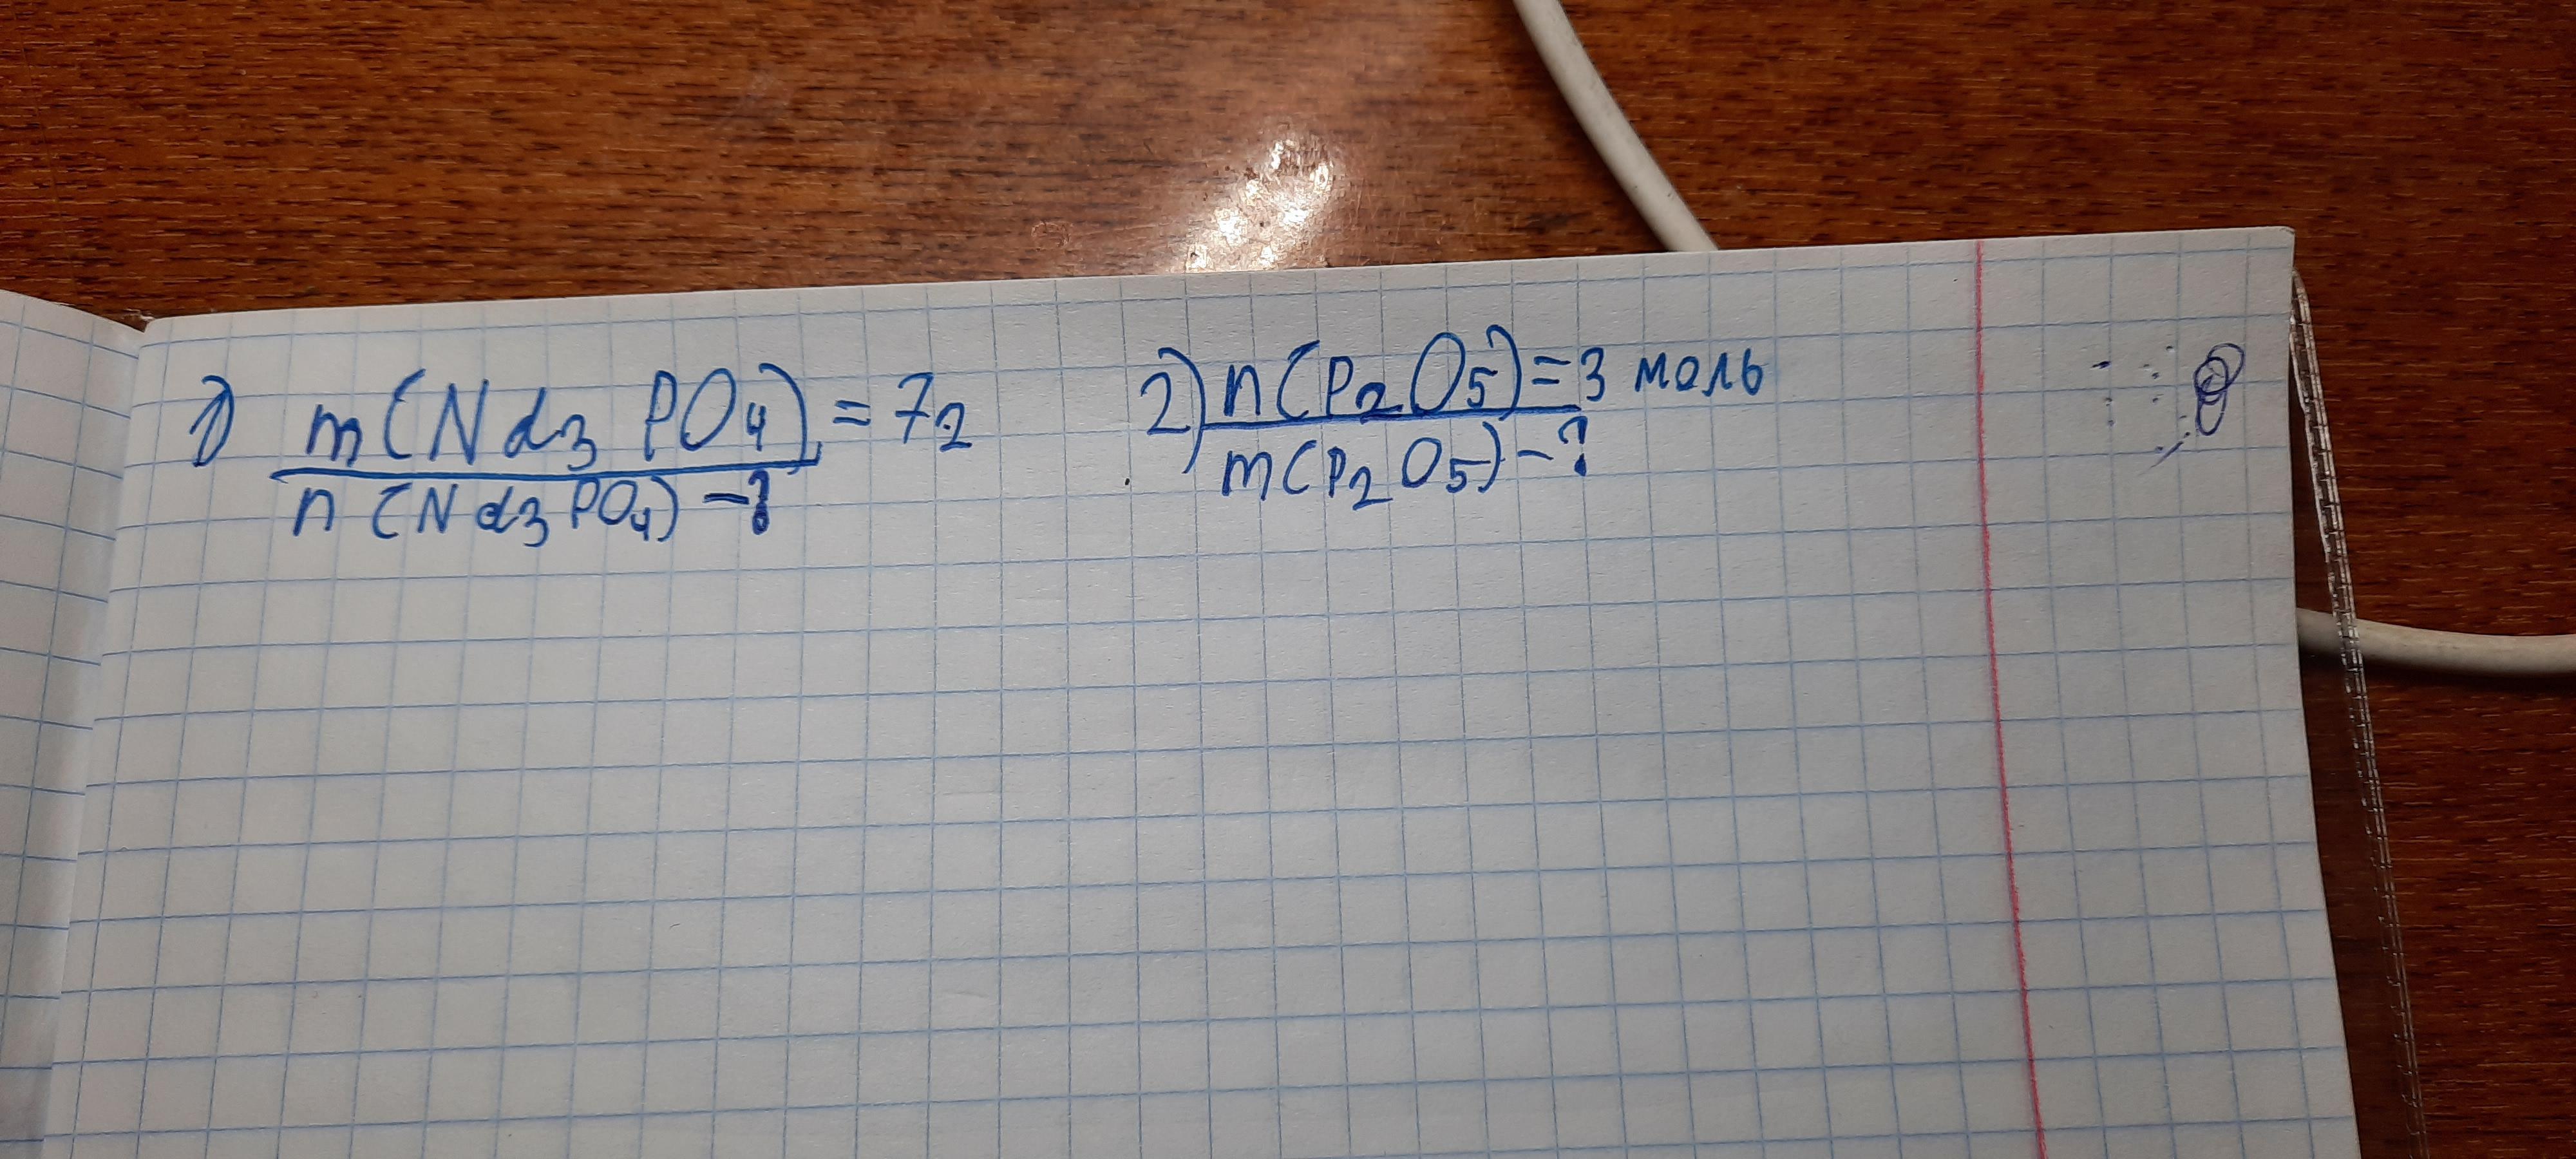 1) m(Na3PO4) = 7г
n(Na3PO4) - ?
2) n(P2O5) = 3 моль
m(P2O5) - ?